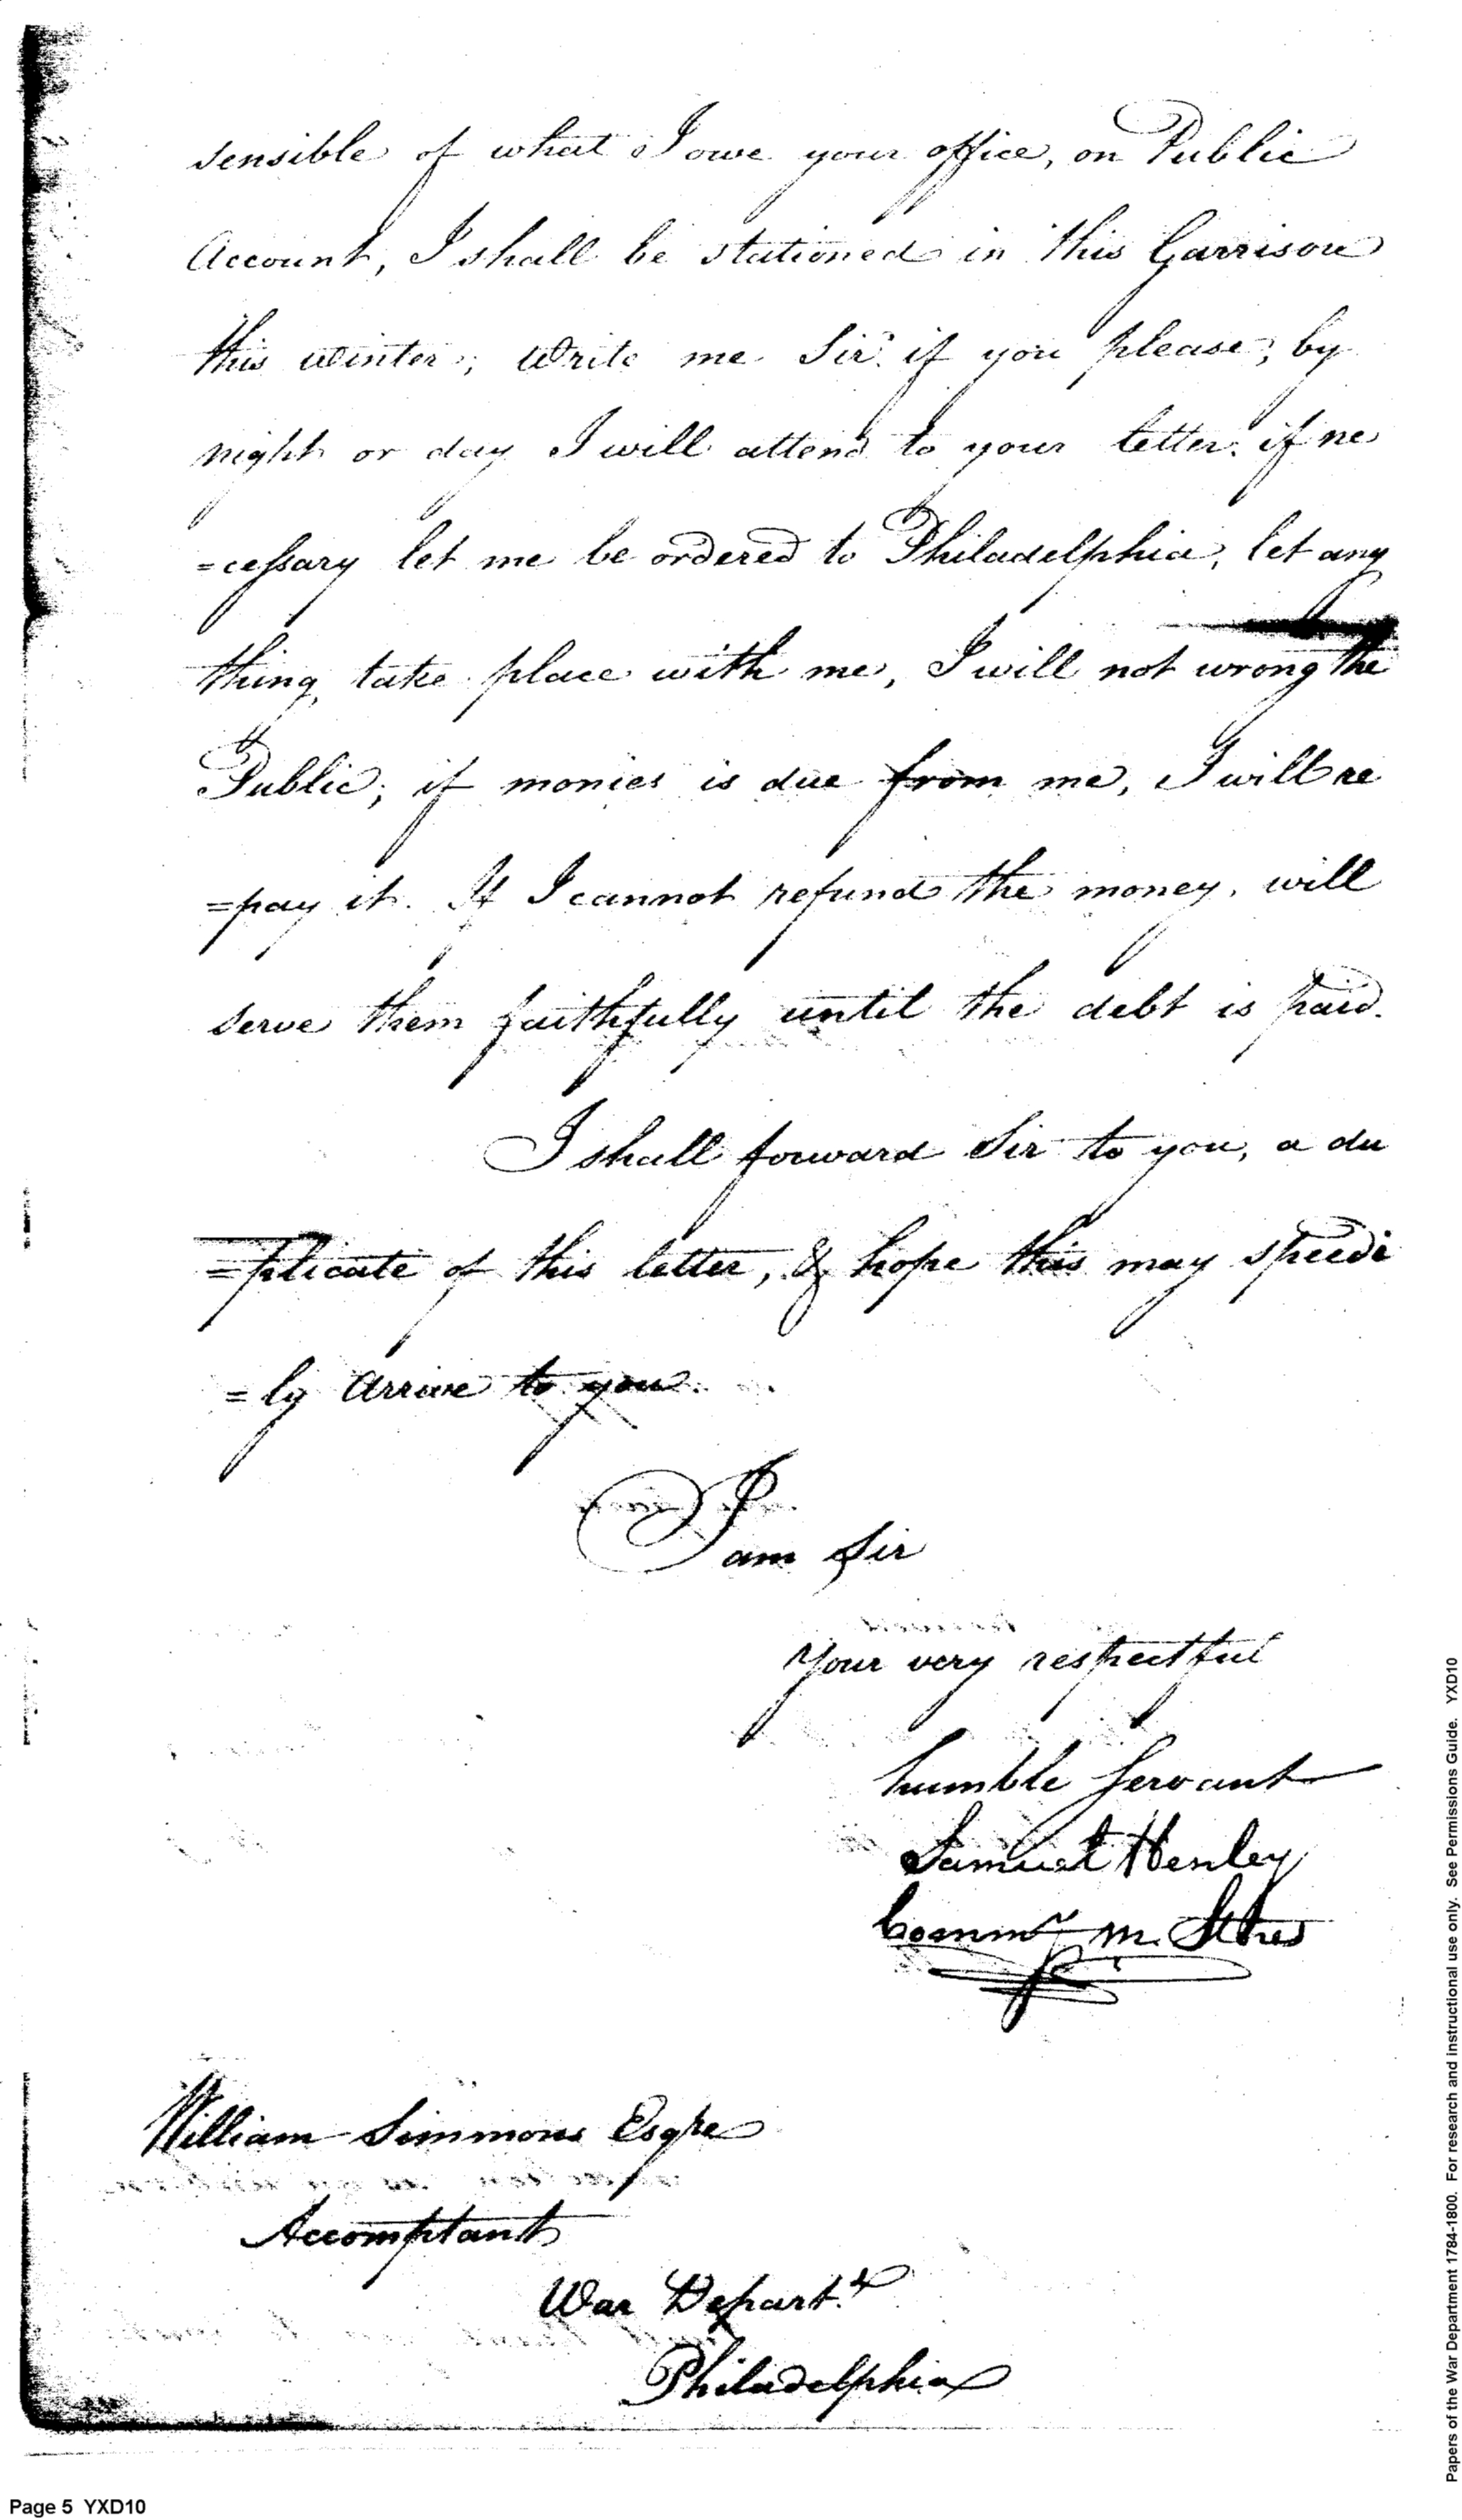 sensible of what I owe your office, on Public
Account, I shall be stationed in this Garrison
this winter; Write me Sir. if you please; by
night or day I will attend to your letter. if ne
=cessary let me be ordered to Philadelphia, let any
thing, take place with me, I will not wrong the
Public; if monies is due from me, I will re
=pay it. If I cannot refund the money, will
serve them faithfully until the debt is paid.
I shall forward Sir to you, a du
=plicate of this letter, & hope this may speedi
=ly arrive to you.
I am Sir
Your very respectful
humble Servant
Samuel Henley
Commy. M. Stores
William Simmons Esqre
Accomptant
War Depart.t
Philadelphia
Page 5 YXD10
Papers of the War Department 1784-1800. For research and instructional use only. See Permissions Guide. YXD10